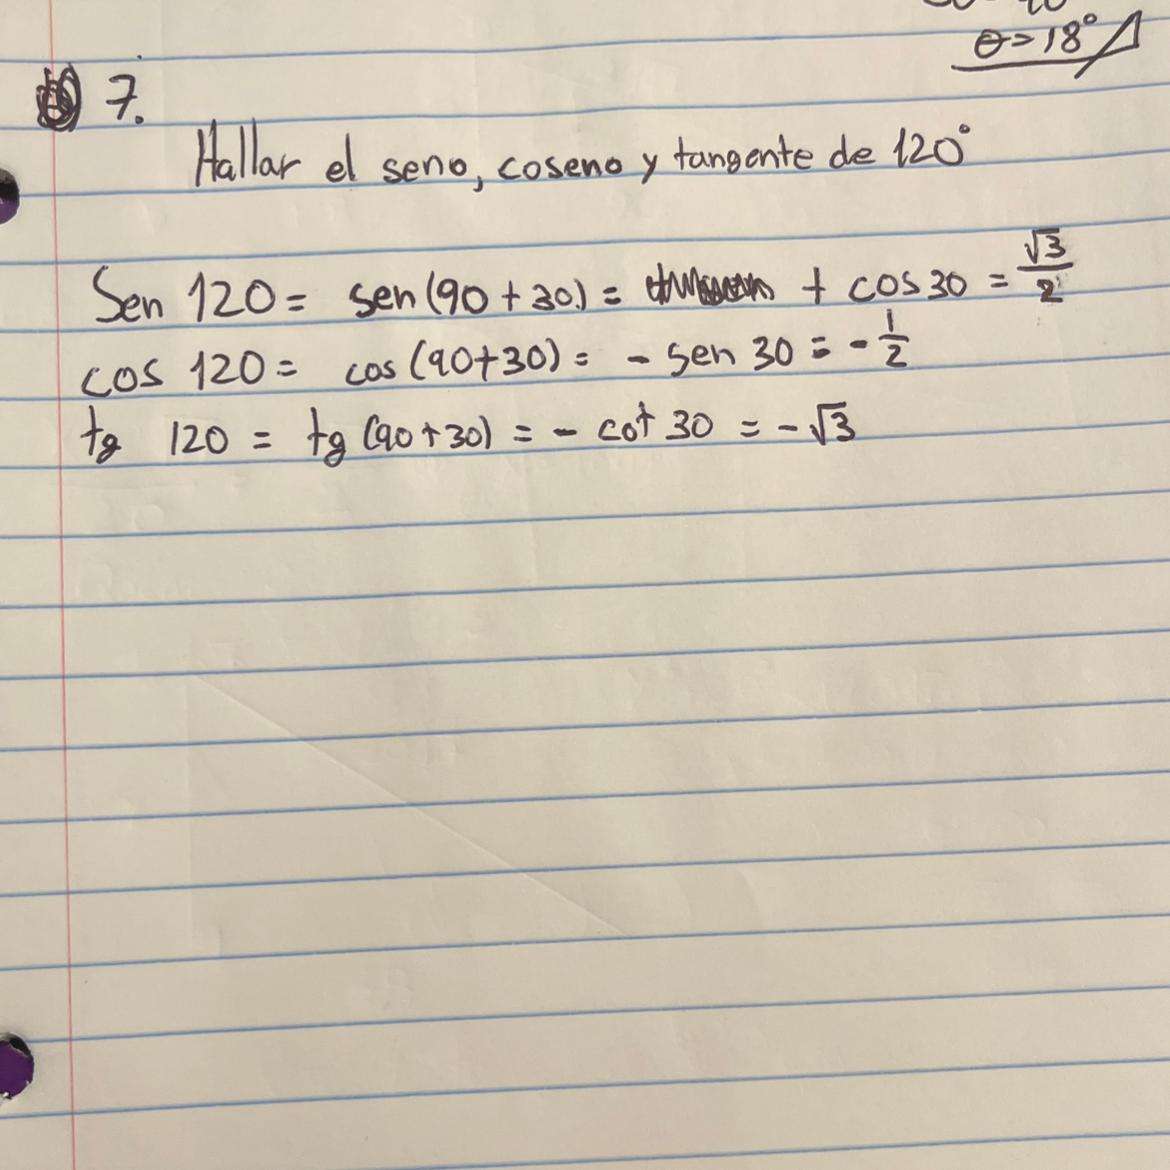 θ=18°
7.
Hallar el seno, coseno y tangente de 120°
Sen 120 = sen(90+30) = + cos 30 = √3/2
cos 120 = cos (90+30) = - sen 30 = - 1/2
tg 120 = tg (90+30) = - cot 30 = -√3